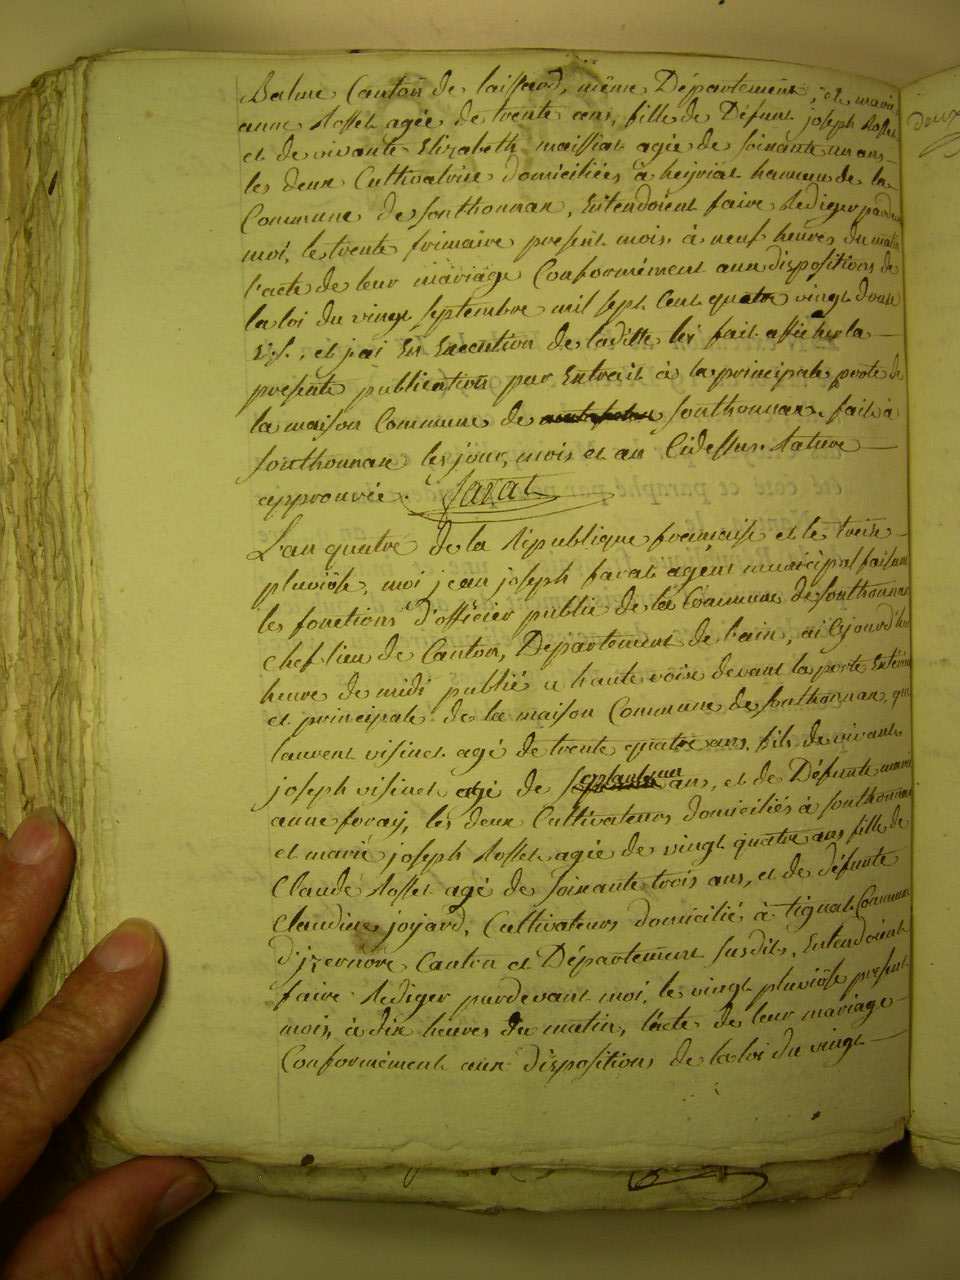 Balme Canton de laissard, même Département, et marie
anne Rosset agée de trente ans, fille de Défunt joseph Rosset
et de vivante Elizabeth maissiat agée de soixante un ans
les deux Cultivatrise domiciliées à heyriat hameau de la
Commune de sonthonnax, Entendoient faire Rediger pardevant
moi, le trente frimaire present mois à neuf heures du matin
l'acte de leur mariage Conformément aux dispositions de
la loi du vingt septembre mil sept Cent quatre vingt douze
V.s. et j'ai En Execution de laditte loi fait afficher la
presente publication par Extrait à la principale porte de
la maison Commune de sonthonnax. fait à
sonthonnax les jour, mois et an Cidessus. Rature
approuvée. favat
L'an quatre de la République française et le treize
pluviôse, moi jean joseph favat agent municipal faisant
les fonctions d'officier public de la Commune de sonthonnax
chef lieu de Canton, Département de l'ain, ai Cejourd'hui
heure de midi publié a haute voix devant la porte Extérieure
et principale de la maison Commune de sonthonnax, que
laurent visinet agé de trente quatre ans, fils de vivant
joseph visinet agé de septante un ans, et de Défunte marie
anne foray, les deux Cultivateurs domiciliés à sonthonnax
et marie joseph Rosset agée de vingt quatre ans fille de
Claude Rosset agé de soixante trois ans, et de défunte
Claudine joyard, Cultivateurs domicilié à tignat Commune
d'izernore Canton et Département susdits, Entendoient
faire Rediger pardevant moi, le vingt pluviôse present
mois, à dix heures du matin, l'acte de leur mariage
Conformément aux dispositions de la loi du vingt